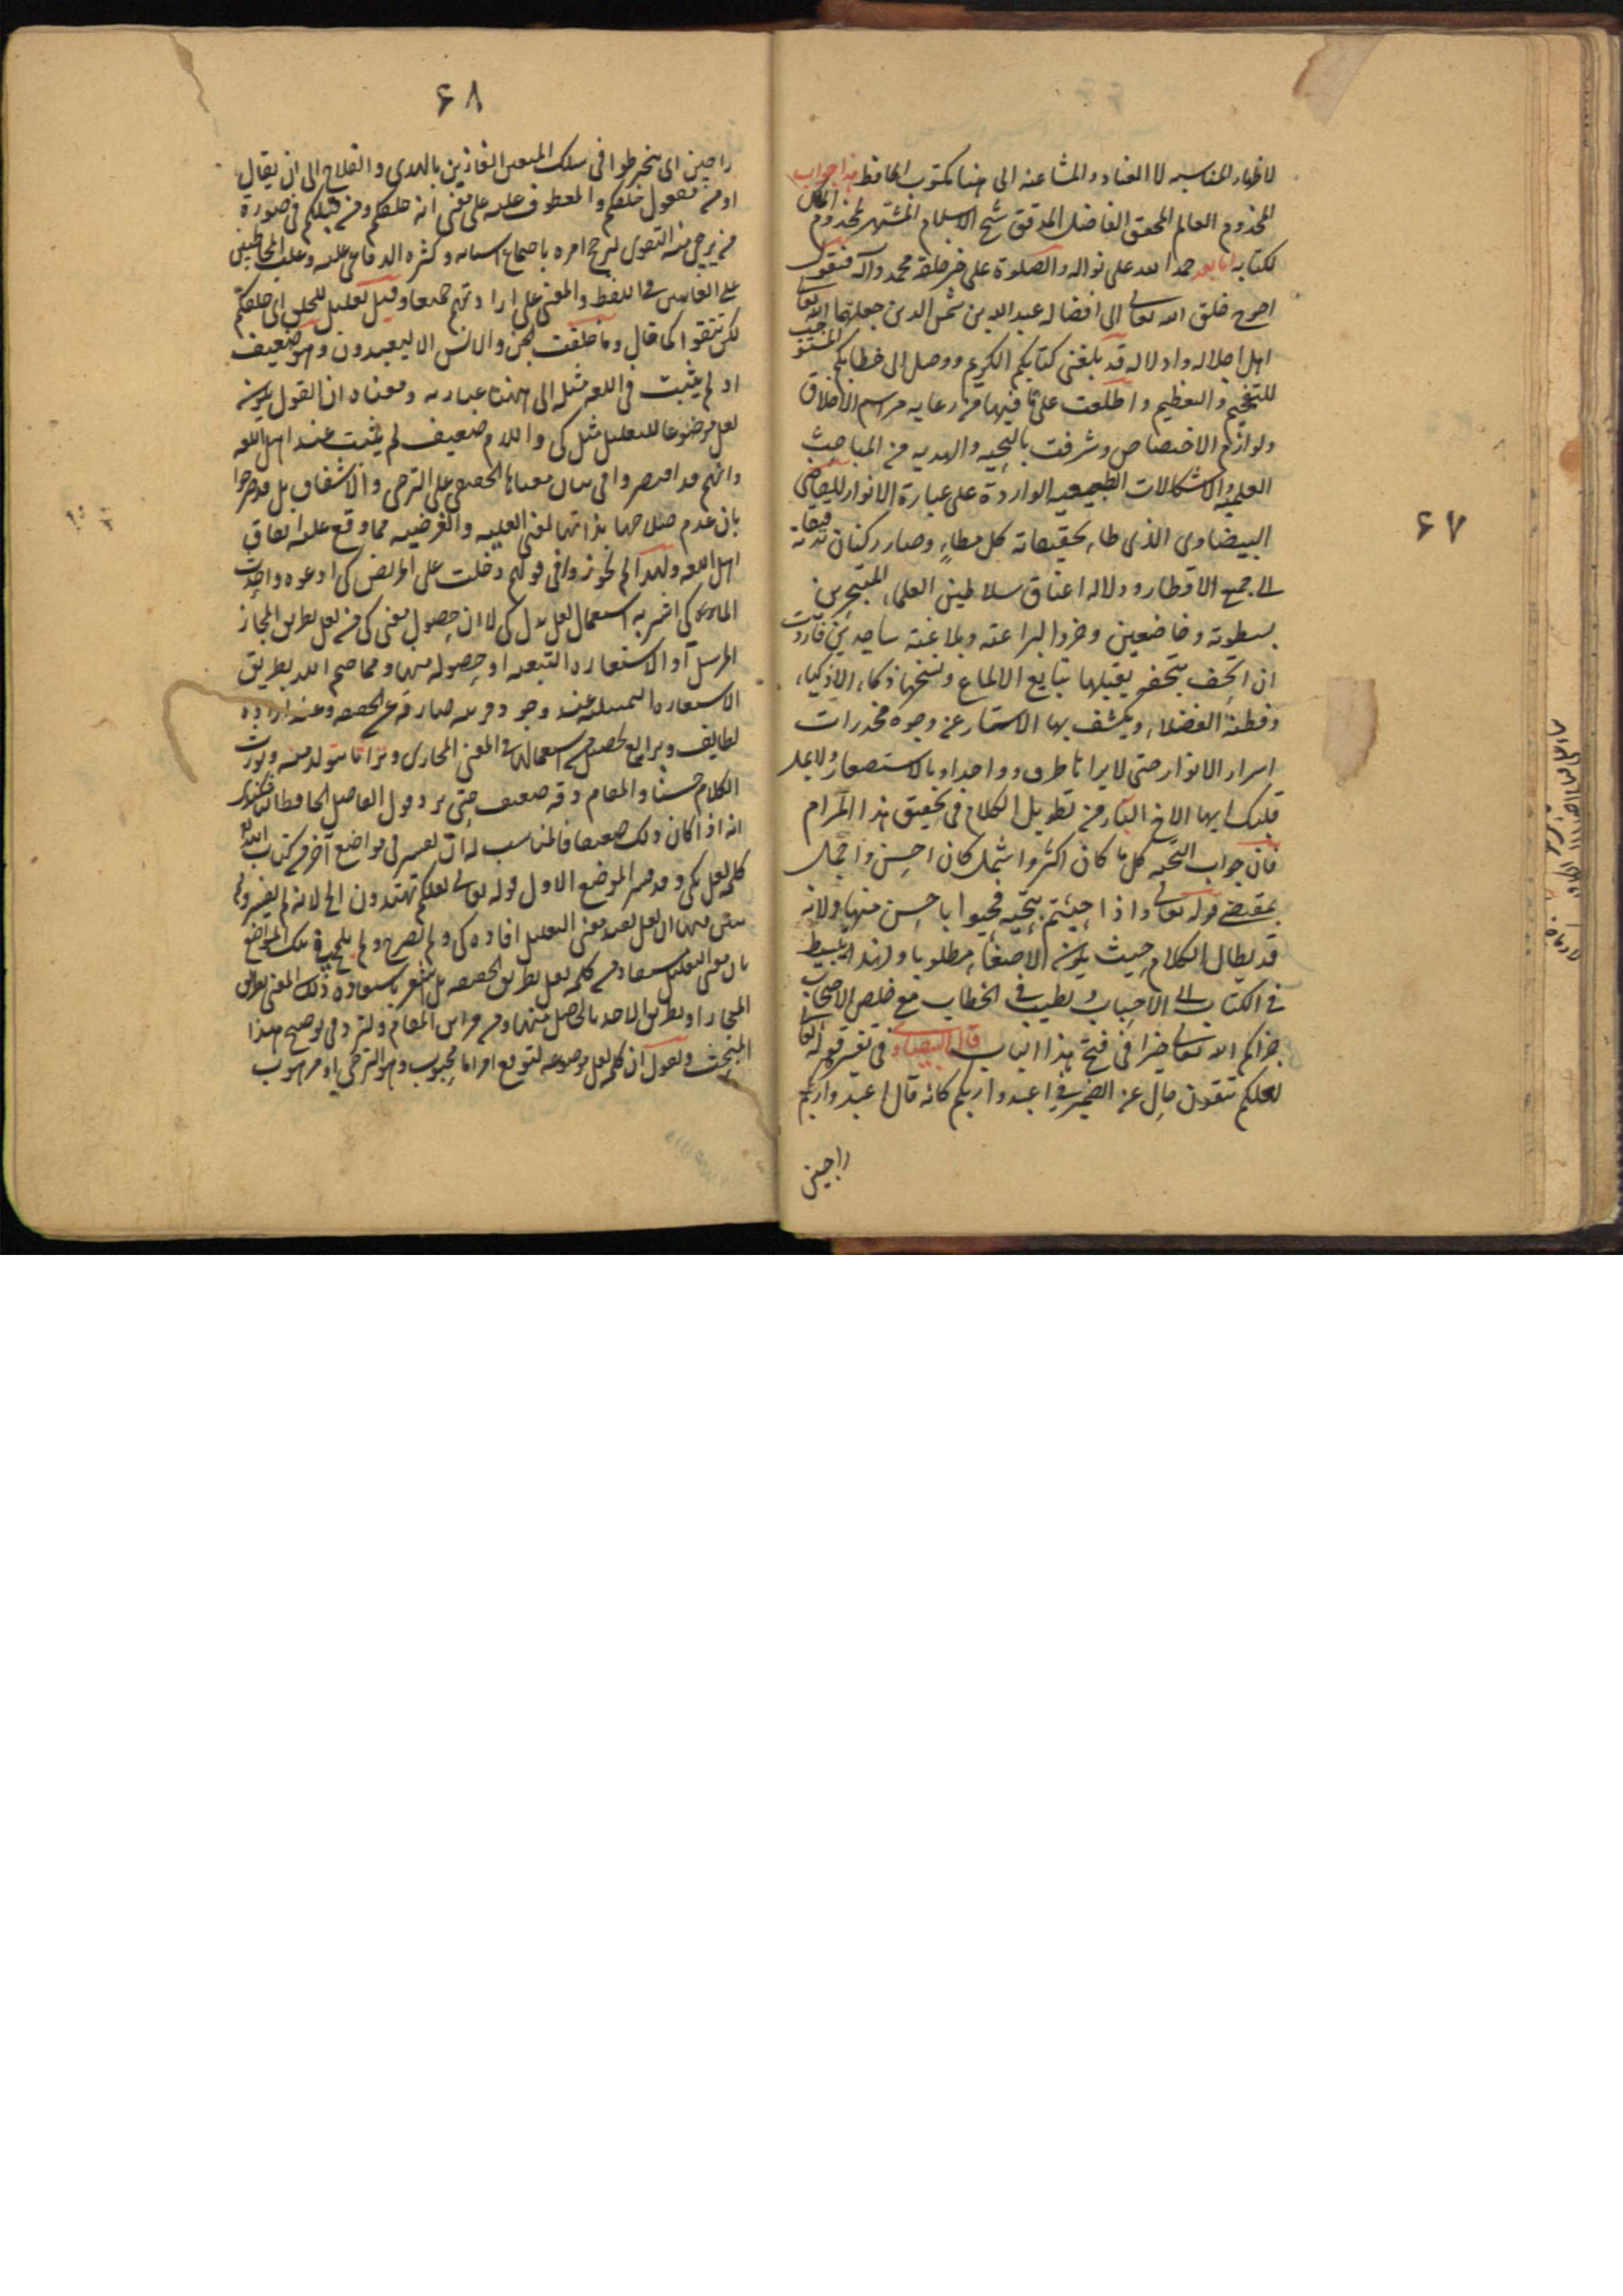 ۶۷
لاظهار المناسبه لا العناد والمشاعنه الى هنا مكتوب الحافظ هذا جواب
المخدوم العالم المحقق الفاضل المدقق شيخ الاسلام المشتهر بمخدوم الملك
لكتابه اما بعد حمدا لله على نواله والصلوة على خير خلقه محمد وآله فنقول
احوج خلق الله تعالى الى افضاله عبد الله بن شمس الدين جعلهما الله تعالى
اهل اجلاله وادلاله قد بلغنى كتابكم الكريم ووصل الى خطابكم المستوجب
للتفخيم والتعظيم واطلعت على ما فيهما من رعايه مراسم الاخلاق
ولوازم الاختصاص وشرفت بالتحيه والهديه من المباحث
العلميه والاشكالات الواردة على عبارة الانوار للقاضى
البيضاوى الذى طار بتحقيقاته كل مطار وصار ركبان تدقيقاته
الى جميع الاقطار و دلاله اعناق سلاطين العلماء المتبحرين
بسطوته وخاضعين وخروا لبراعته وبلاغته ساجدين فاردت
ان اتحف بتحف يقبلها بتايع الالماع ونسخها ذكاء الاذكياء
وفطنة الفضلاء ويكشف بها الاستار عن وجوه مخدرات
اسرار الانوار حتى لا يرا ناظرى وواجد او بالاستصعار ولا يمل
قلبك ايها الاخ البار من تطويل الكلام فى تحقيق هذا المرام
فان جواب التحيه كل ما كان اكثر واشمل كان احسن واجمل
بمقتضى قوله تعالى واذا حييتم بتحيه فحيوا باحسن منها ولانه
قد يطال الكلام حيث يكون الاصغاء مطلوبا ولهذا يبسط
فى الكتاب الى الاحباب ويطيب فى الخطاب مع خلص الاصحاب
جزاكم الله تعالى خيرا فى فتح هذا الباب قال البيضاوى فى تفسير قوله تعالى
لعلكم تتقون حال عن الضمير فى اعبدوا ربكم كانه قال اعبدوا ربكم
راجين
۶۸
راجين اى ينخرطوا فى سلك المتقين الفائزين بالهدى والفلاح الى ان يقال
او من مفعول خلقكم والمعطوف عليه على معنى انه خلقكم ومن قبلكم فى صورة
من يرجى منه التقوى لترجح امره باجتماع اسبابه وكثرة الدواعى اليه وغلب المخاطبين
على الغائبين فى اللفظ والمعنى على ارادتهم جميعا وقيل تعليل للخلق اى خلقكم
لكى تتقوا كما قال وما خلقت الجن والانس الا ليعبدون وهو ضعيف
اذ لم يثبت فى اللغه مثله الى هنا عبارته ومعناه ان القول بكون
لعل موضوعا للتعليل مثل كى واللام ضعيف لم يثبت عند اهل اللغه
وانهم قد اقتصروا فى بيان معناها الحقيقى على الترجى والاشفاق بل قد صرحوا
بان عدم صلاحها بذاتها لمعنى العليه والغرضيه مما وقع عليه اتفاق
اهل اللغه ولهذا لم يجوزوا فى قولهم دخلت على المريض كى ادعوه واخذت
الماء كى اشربه استعمال لعل بدل كى لا ان حصول معنى كى من لعل بطريق المجاز
المرسل او الاستعاره التبعيه او حصوله منها ومما ضم اليه بطريق
الاستعاره التمثيليه عند وجود قرينه صارفه عن الحقيقه وعند اراده
لطايف وبدايع تحصل من استعمالها فى المعنى المجازى ومزايا تتولد منه وتورث
الكلام حسنا والمقام دقه ضعيف حتى يرد قول الفاضل الحافظ
انه اذا كان ذلك ضعيفا فالمناسب له ان يفسر فى مواضع آخر من كتاب الله
كلمه لعل بكى وقد فسر الموضع الاول قوله تعالى لعلكم تهتدون الخ لانه لم يفسر ولم
معنى التعليل افاده كى ولم يصرح ولم يلمح فى تلك المواضع
بان معنى التعليل مستفاد من كلمه لعل بطريق الحقيقه بل اشعر باستفاده ذلك المعنى بطريق
المجاز او بطريق الاخذ بالحاصل منها ومن قرائن المقام ولنزد فى توضيح هذا
المبحث ونقول ان كلمه لعل موضوعه لتوقع امر اما محبوب وهو الترجى او مرهوب